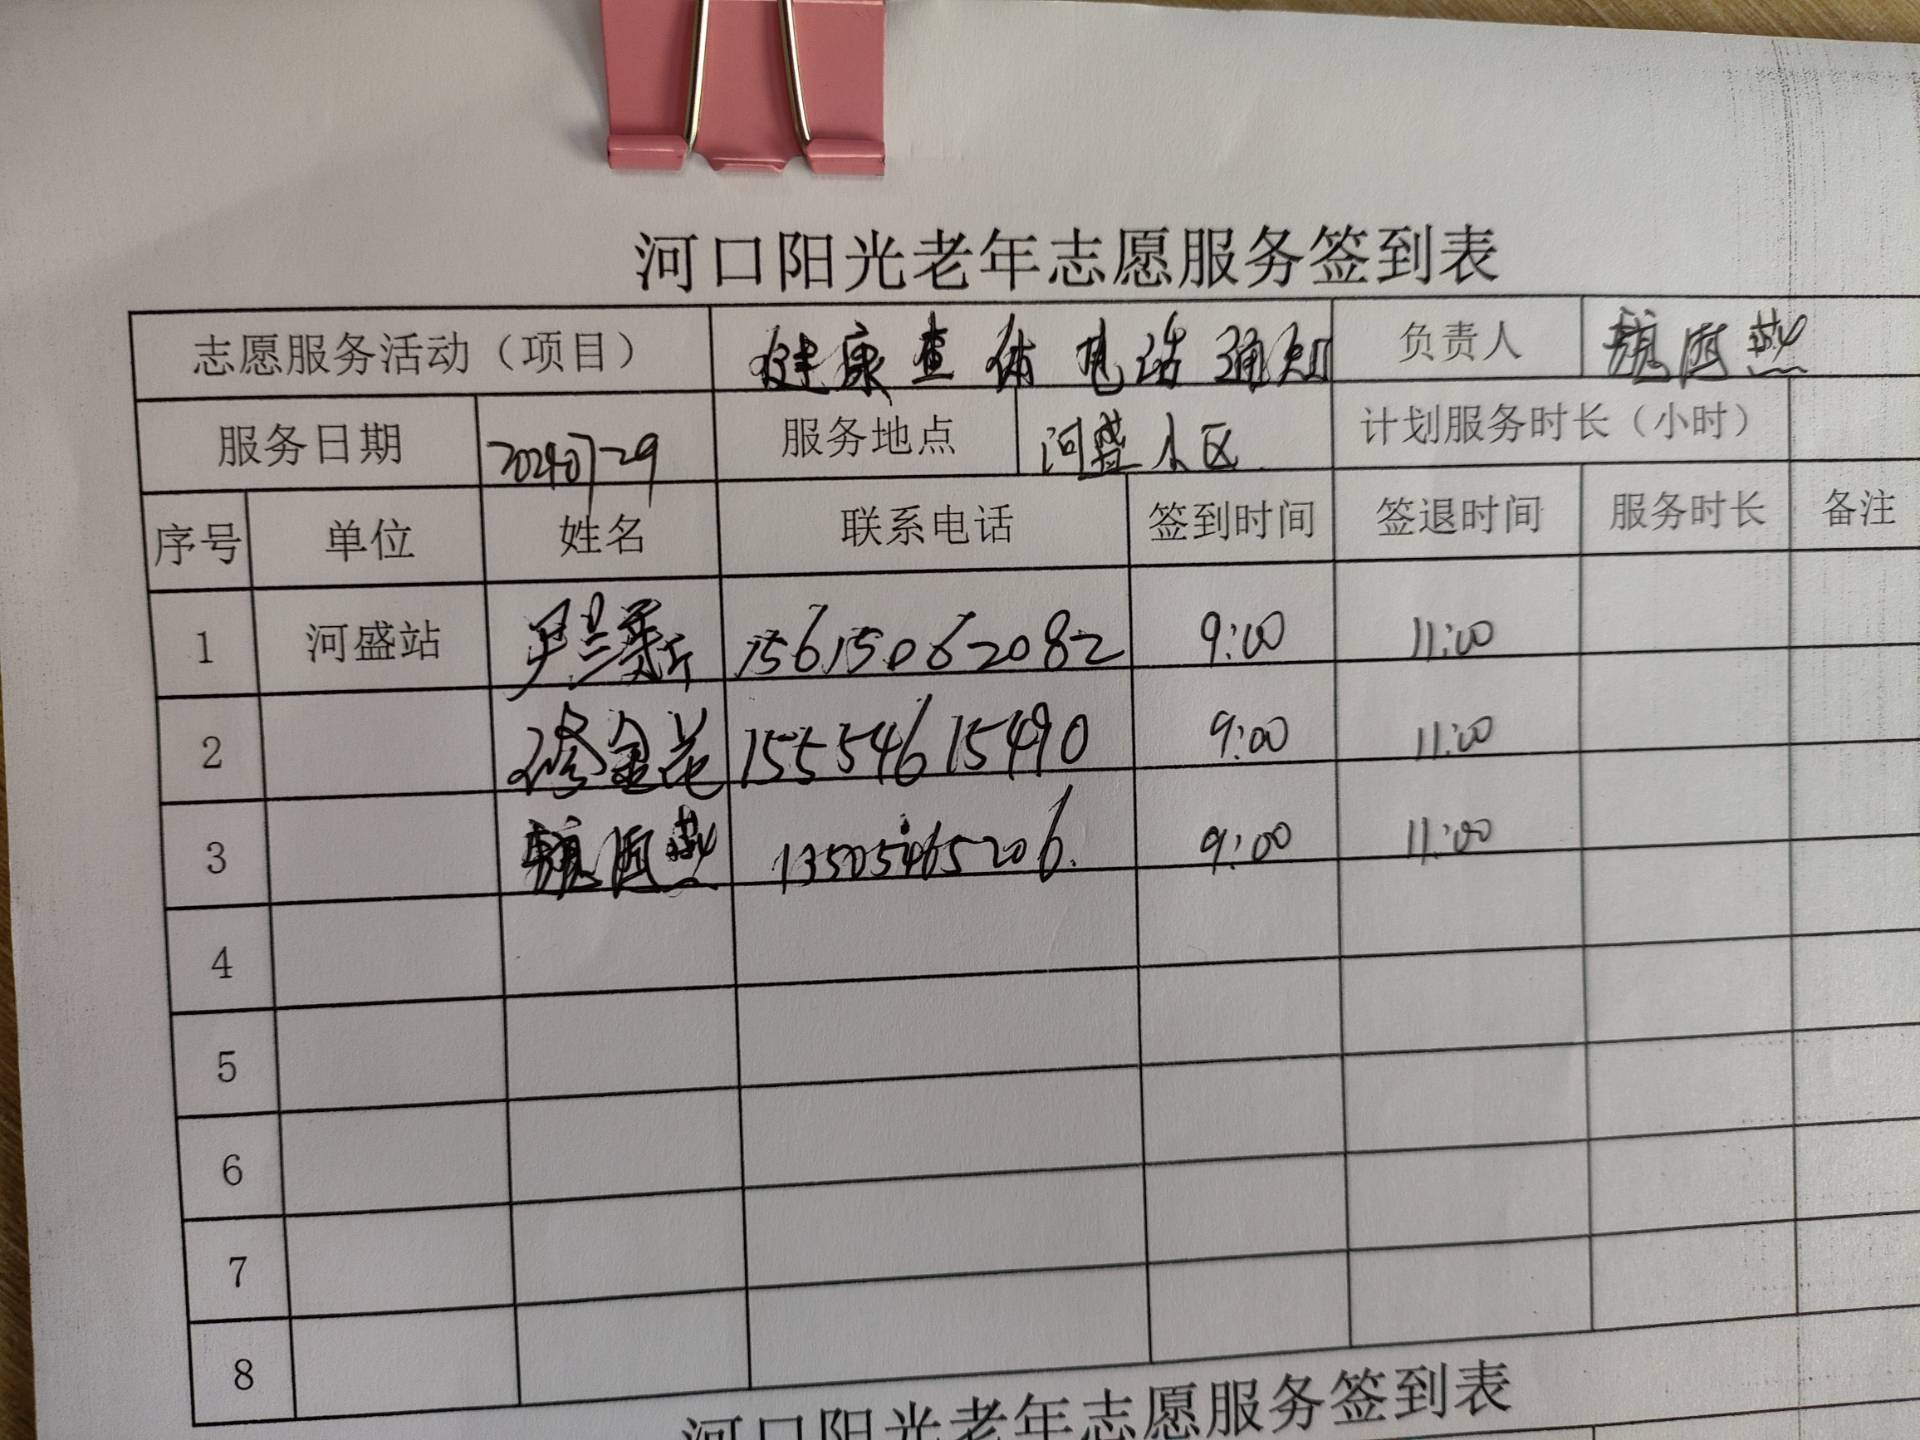 河口阳光老年志愿服务签到表
志愿服务活动（项目） 健康查体电话通知 负责人
服务日期 20240729 服务地点 河盛小区 计划服务时长（小时）
序号 单位 姓名 联系电话 签到时间 签退时间 服务时长 备注
1 河盛站 尹兰新 15615062082 9:00 11:00
2 金花 15554615490 9:00 11:00
3 13505465206. 9:00 11:00
4
5
6
7
8
河口阳光老年志愿服务签到表